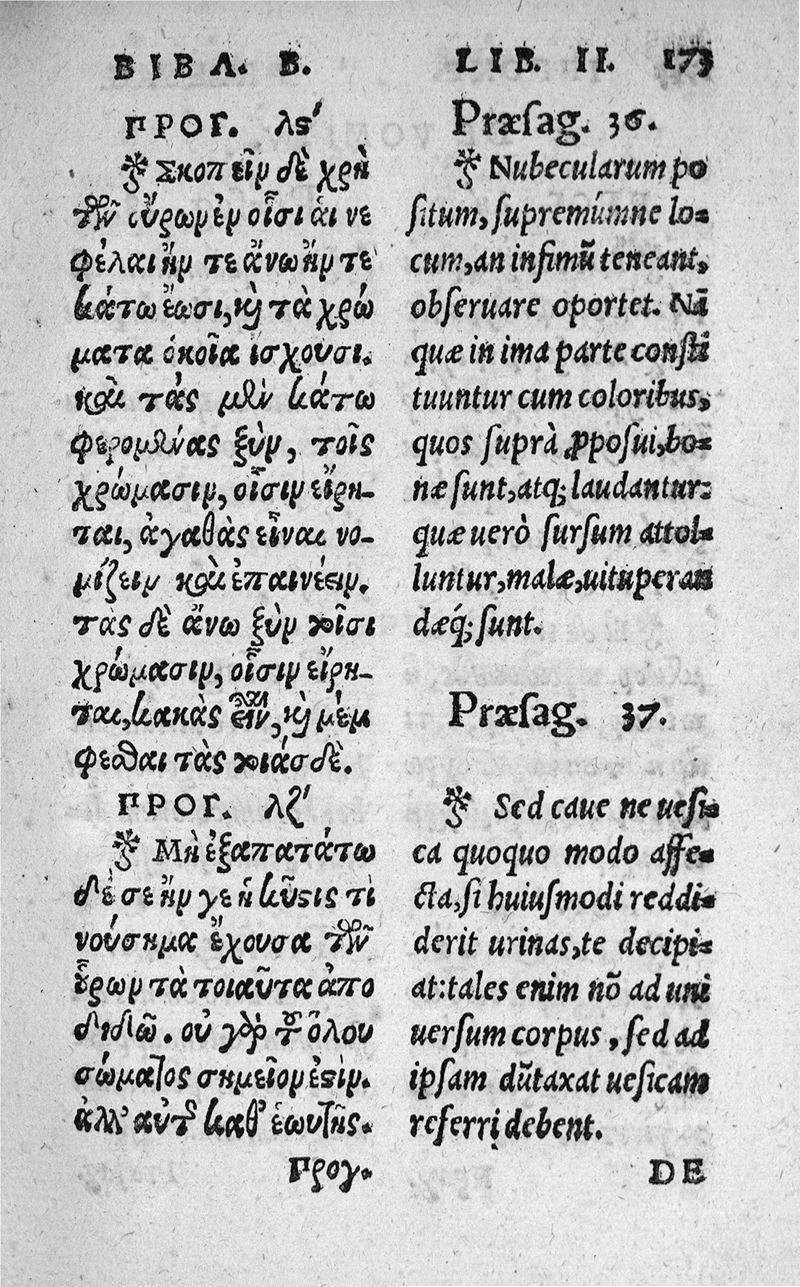 ΒΙΒΛ. Β.
ΠΡΟΓ. λϛ'
Σκοπεῖν δὲ χρὴ
τῶν οὔρων ἐν οἷσι αἱ νε
φέλαι ἤν τε ἄνω ἤν τε
κάτω ἔωσι, καὶ τὰ χρώ
ματα ὁκοῖα ισχουσι.
καὶ τὰς μὲν κάτω
φερομένας ξὺν, τοῖς
χρώμασιν, οἷσιν εἴρη-
ται, ἀγαθὰς εἶναι νο-
μίζειν καὶ ἐπαινέειν.
τὰς δὲ ἄνω ξὺν τοῖσι
χρώμασιν, οἷσιν εἴρη-
ται, κακὰς εἶναι, καὶ μέμ
φεσθαι τὰς τοιάσδε.
ΠΡΟΓ. λζ'
Μὴ ἐξαπατάτω
δέ σε ἤν γε ἡ κῦστις τὶ
νούσημα ἔχουσα τῶν
οὖρων τὰ τοιαῦτα ἀπο
διδιῶ. οὐ γὰρ τοῦ ὅλου
σώματος σημεῖον ἐστὶν.
ἀλλ' αὐτῆς καθ' ἑωυτῆς.
Προγ.
LIB. II. 173
Præſag. 36.
Nubecularum po
ſitum, ſupremúmne lo-
cum, an infimũ teneant,
obſeruare oportet. Nã
quæ in ima parte conſti
tuuntur cum coloribus,
quos ſuprà ꝓpoſui, bo-
næ ſunt, atq; laudantur:
quæ uerò ſurſum attol-
luntur, malæ, uituperan
dæq́; ſunt.
Præſag. 37.
Sed caue ne ueſi-
ca quoquo modo affe-
cta, ſi huiuſmodi reddi-
derit urinas, te decipi-
at: tales enim nõ ad uni
uerſum corpus, ſed ad
ipſam dũtaxat ueſicam
referri debent.
DE